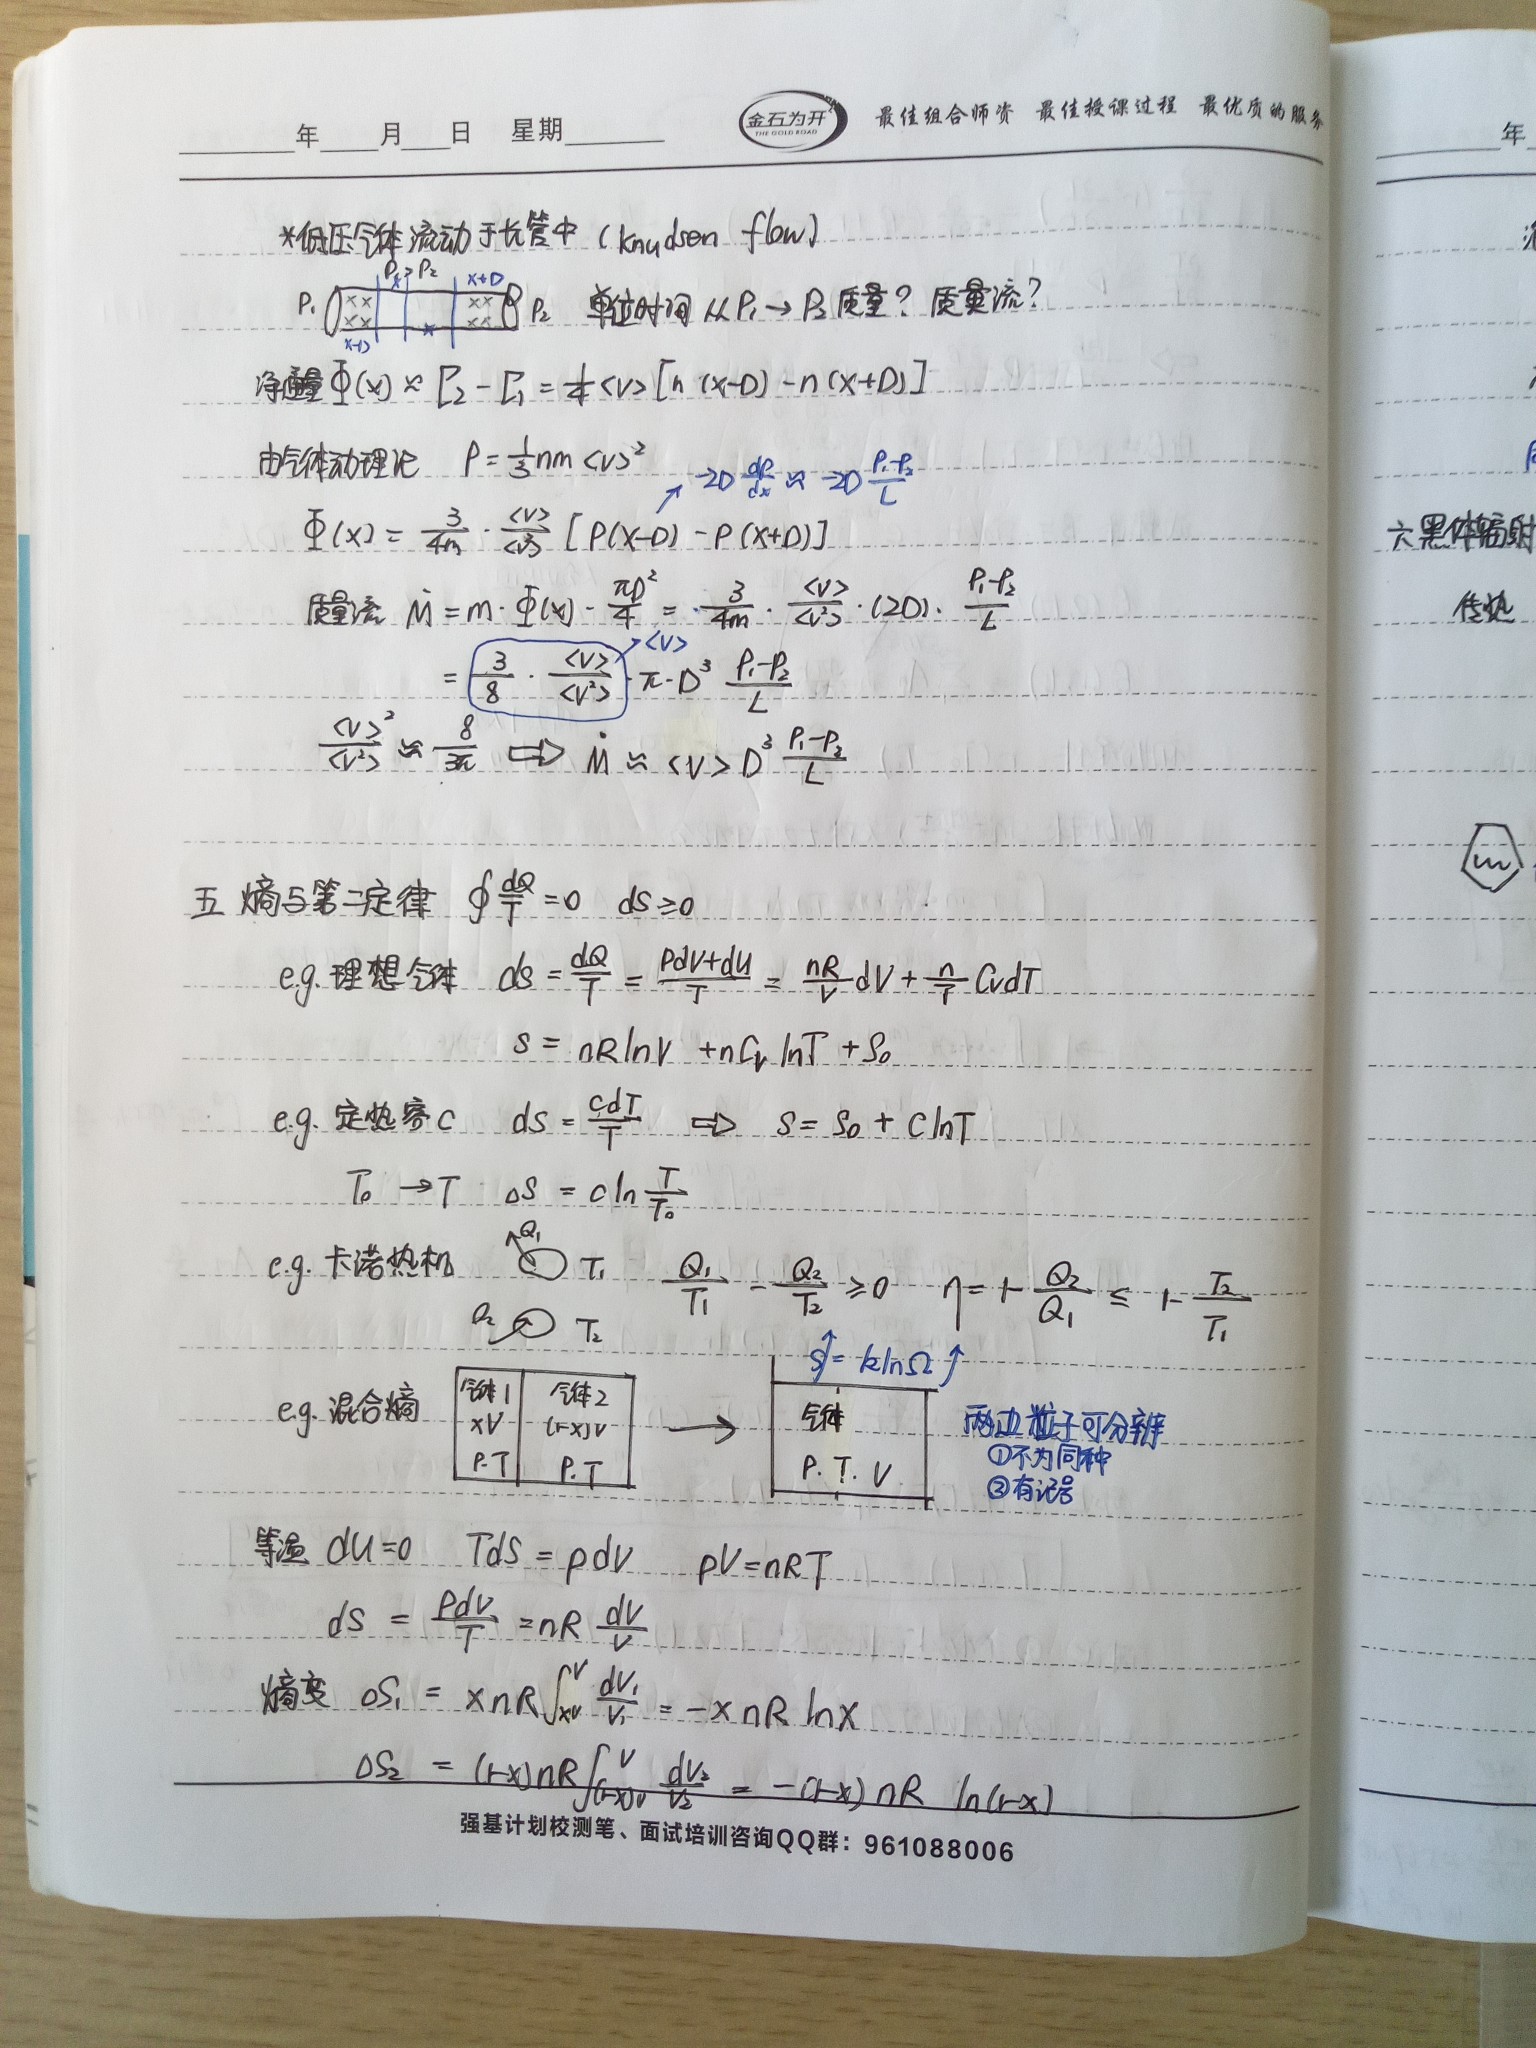 ____年____月____日 星期______ 金石为开 THE GOLD ROAD 最佳组合师资 最佳授课过程 最优质的服务
*低压气体流动于长管中 (knudsen flow)
P₁>P₂
x x+D
P₁ P₂ 单位时间从P₁→P₂质量? 质量流?
x-D x
净通量 Φ(x) ≈ Γ₂ - Γ₁ = 1/4 <v> [n (x-D) - n (x+D)]
由气体动理论 P = 1/3 nm <v>²
→ -2D dp/dx ≈ -2D (P₁-P₂)/L
Φ(x) = 3/4m · <v>/<v²> [P(x-D) - P(x+D)]
质量流 Ṁ = m · Φ(x) · πD²/4 = 3/4m · <v>/<v²> · (2D) · (P₁-P₂)/L
= 3/8 · <v>/<v²> · π · D³ (P₁-P₂)/L
→ <v>
<v>²/<v²> ≈ 8/3π ⇨ Ṁ ≈ <v> D³ (P₁-P₂)/L
五 熵与第二定律 ∮ dQ/T = 0 ds ≥ 0
e.g. 理想气体 ds = dQ/T = (PdV+dU)/T = nR/V dV + n/T CvdT
S = nR lnV + nCv lnT + S₀
e.g. 定热容C ds = CdT/T ⇨ S = S₀ + C lnT
T₀ → T ΔS = C ln T/T₀
e.g. 卡诺热机 Q₁ T₁ Q₁/T₁ - Q₂/T₂ ≥ 0 η = 1- Q₂/Q₁ ≤ 1- T₂/T₁
Q₂ T₂
S↑ = k lnΩ ↑
e.g. 混合熵 气体1 xV P.T 气体2 (1-x)V P.T → 气体 P. T. V
两边粒子可分辨
①不为同种
②有记号
等温 dU=0 TdS = pdV pV=nRT
dS = PdV/T = nR dV/V
熵变 ΔS₁ = x nR ∫_{xV}^{V} dV₁/V₁ = -x nR lnx
ΔS₂ = (1-x)nR ∫_{(1-x)V}^{V} dV₂/V₂ = -(1-x) nR ln(1-x)
强基计划校测笔、面试培训咨询QQ群：961088006
年
六 黑体辐射
传热